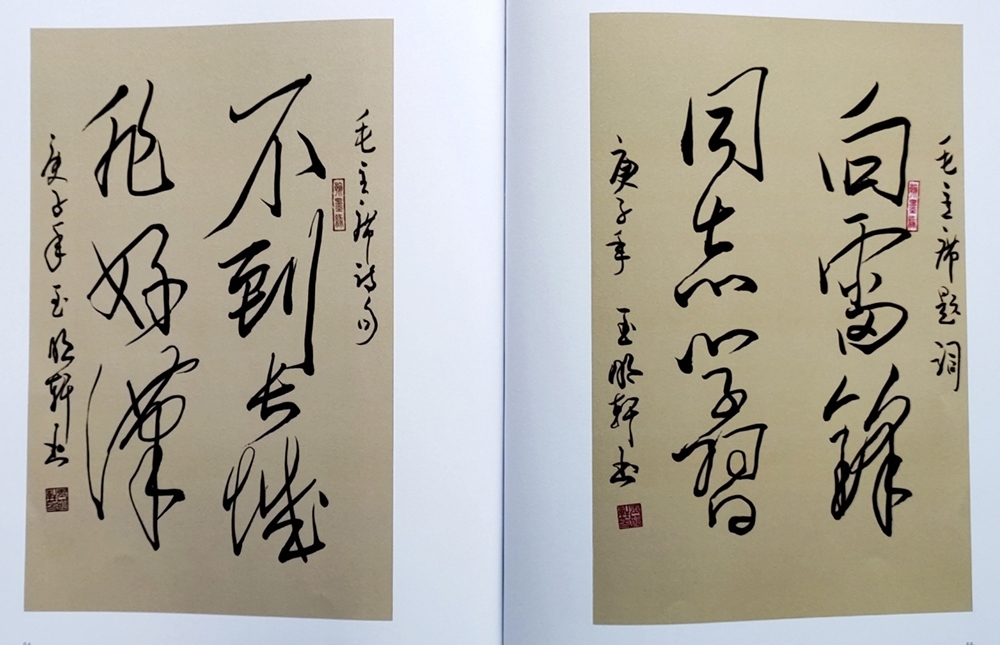 毛主席诗句
不到长城
非好汉
庚子年玉明轩书
毛主席题词
向雷锋
同志学习
庚子年玉明轩书